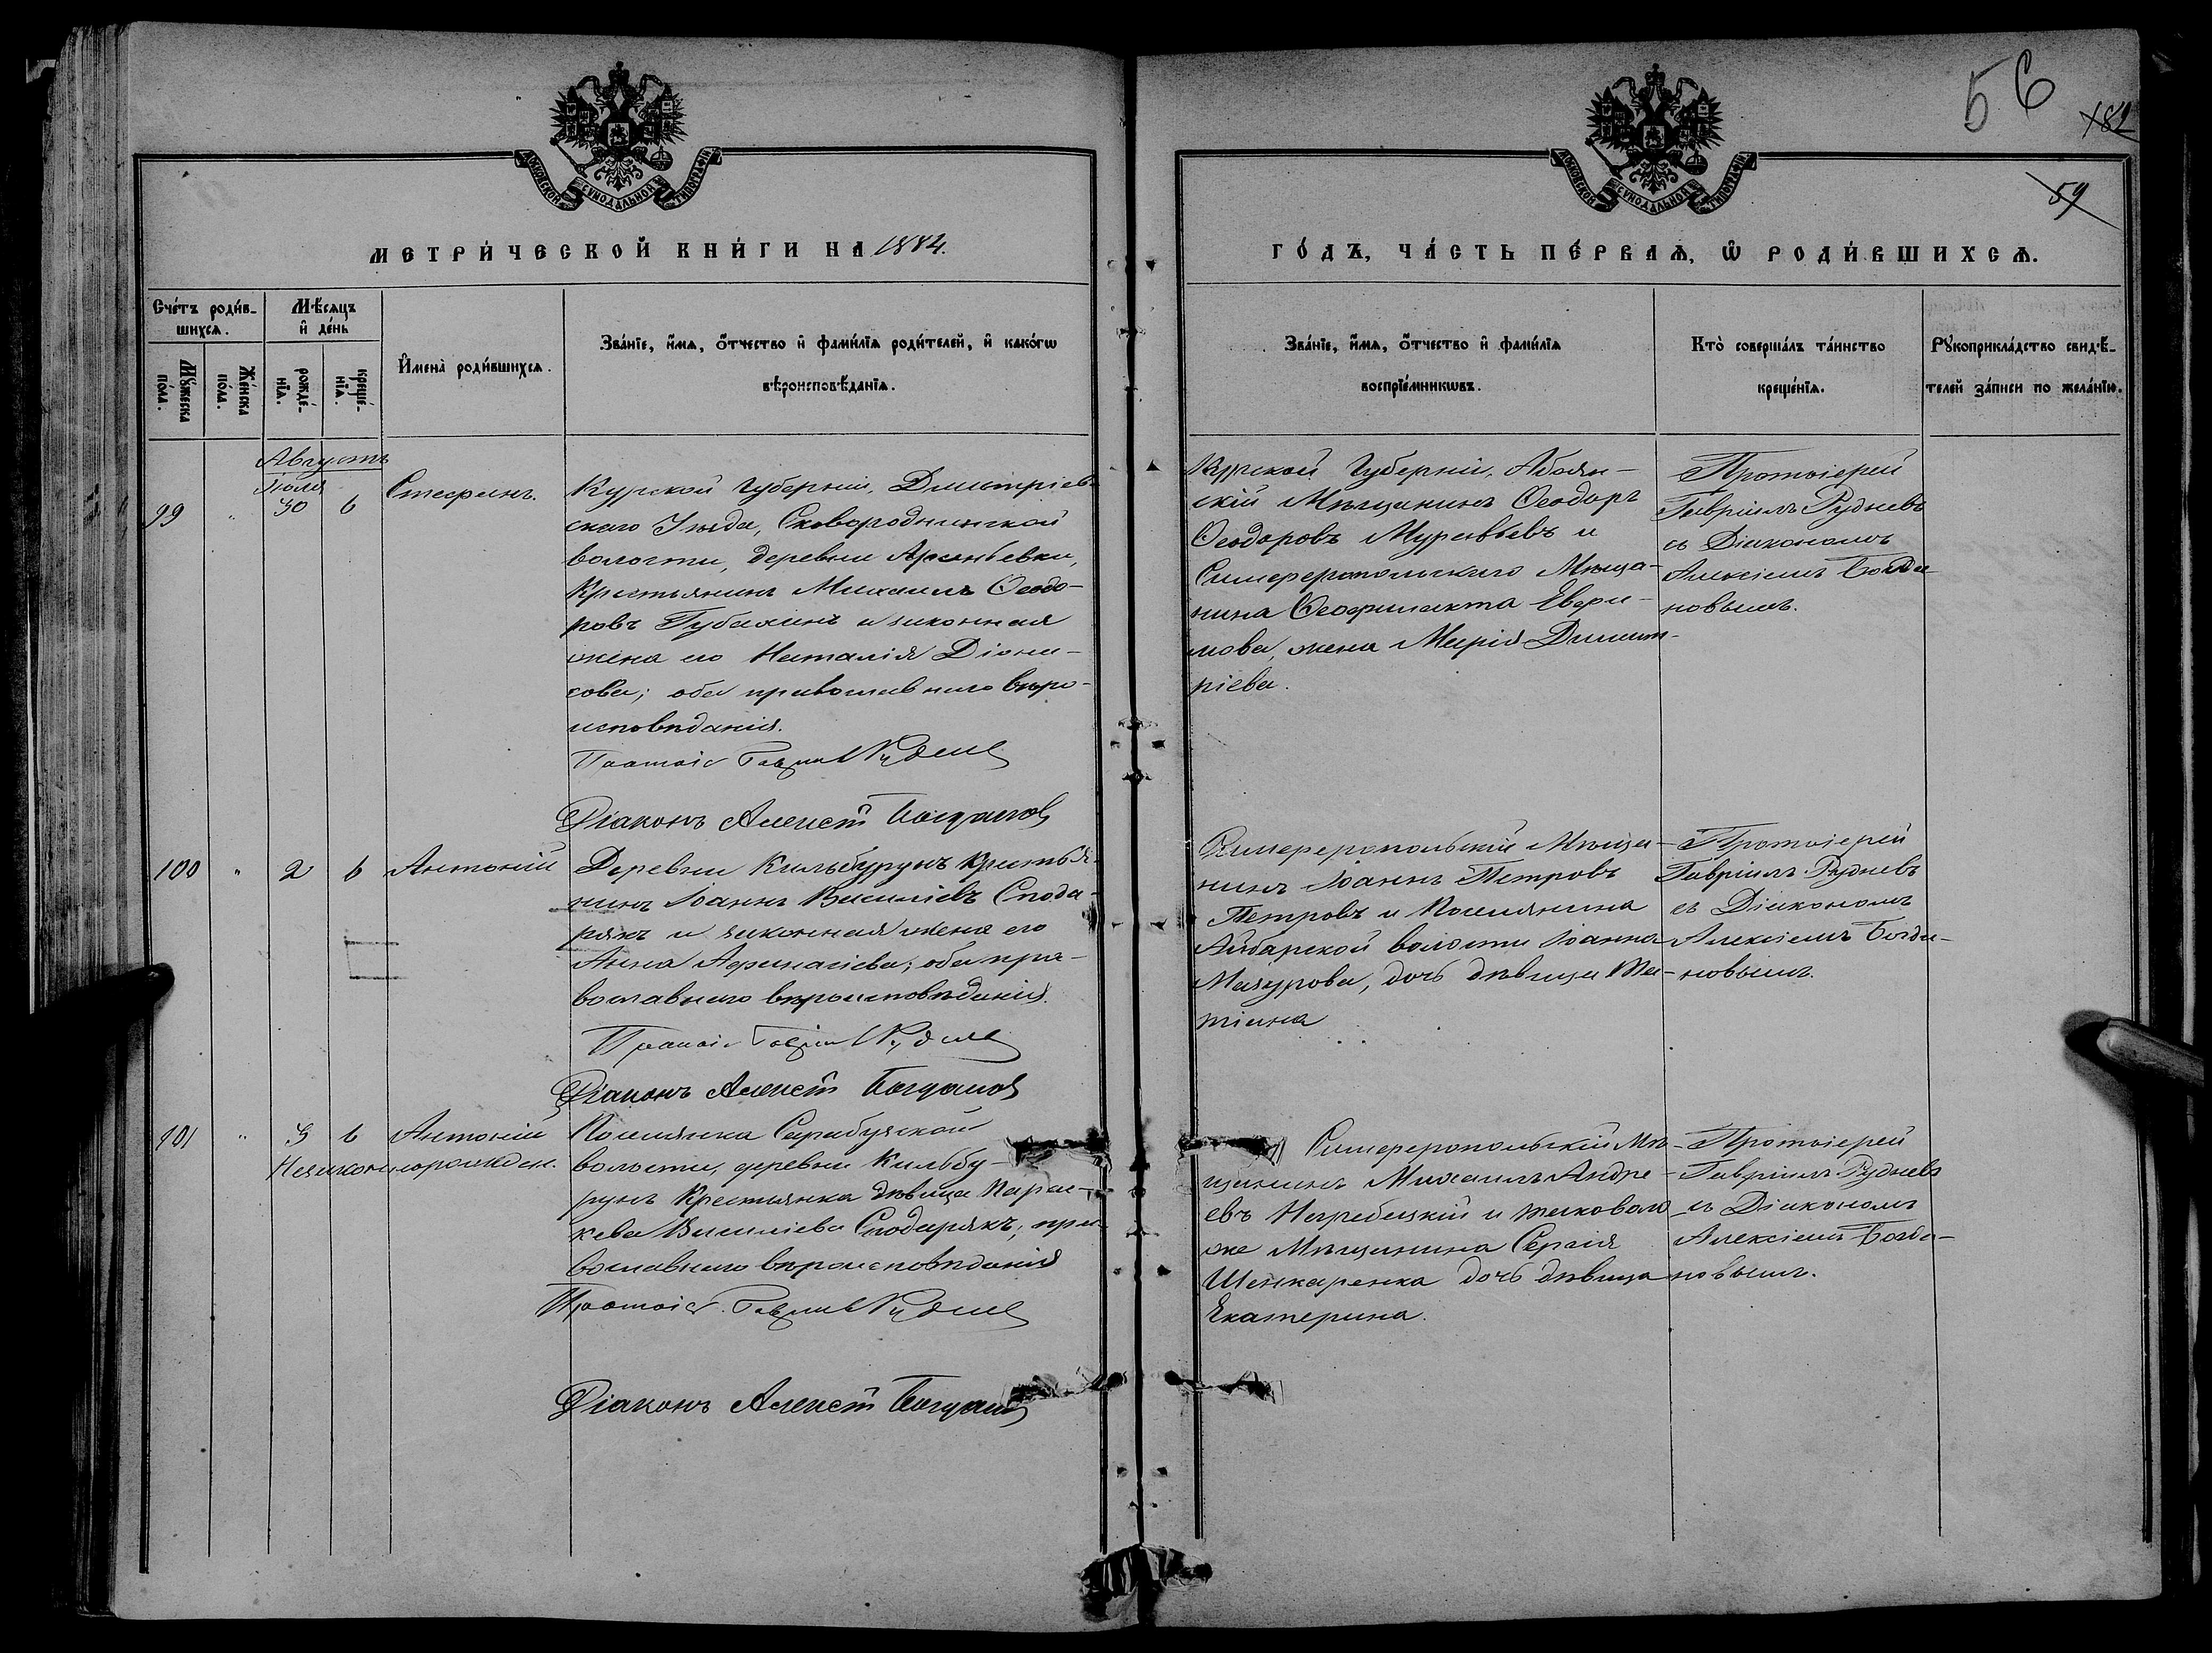 56
182
59
МОСКОВСКОЙ СѴНОДАЛЬНОЙ ТИПОГРАФІИ
МОСКОВСКОЙ СѴНОДАЛЬНОЙ ТИПОГРАФІИ
МЕТРИ́ЧЕСКОЙ КНИ́ГИ НА 1884.
ГО́ДЪ, ЧА́СТЬ ПЕ́РВАѦ, Ѡ҆ РОДИ́ВШИХСѦ.
Сче́тъ роди́в-
шихсѧ.
Мѣ́сѧцъ
и҆ де́нь
Мꙋ́жеска
по́ла.
Же́нска
по́ла.
рожде́-
нїѧ.
креще́-
нїѧ.
И҆мена̀ роди́вшихсѧ.
Зва́нїе, и҆́мѧ, ѻ҆́тчество и҆ фами́лїѧ роди́телей, и҆ како́гѡ
вѣроисповѣ́данїѧ.
Зва́нїе, и҆́мѧ, ѻ҆́тчество и҆ фами́лїѧ
воспрїе́мникѡвъ.
Кто̀ соверша́лъ та́инство
креще́нїѧ.
Рꙋкоприкла́дство свидѣ́-
телей за́писи по жела́нїю.
Августъ
Іюля
99 " 30 6 Стефанъ.
Курской Губерніи, Дмитріев-
скаго Уѣзда, Сковороднинской
волости, деревни Арсеньевки,
Крестьянинъ Михаилъ Ѳеодо-
ровъ Губанинъ и законная
жена его Наталія Діони-
сова; оба православнаго вѣро-
исповѣданія.
Протоіе Гавриил Руднев
Діаконъ Алексій Богданов
Курской Губерніи, Абоян-
скій Мѣщанинъ Ѳеодоръ
Ѳеодоровъ Муравьевъ и
Симферопольскаго Мѣща-
нина Ѳеофилакта Ефи-
мова, жена Марія Димит-
ріева.
Протоіерей
Гавріилъ Рудневъ
съ Діакономъ
Алексіемъ Богда-
новымъ.
100 " 2 6 Антоній
Деревни Кильбурунъ Крестья-
нинъ Іоаннъ Василіевъ Спода-
рякъ и законная жена его
Анна Афанасіева; оба пра-
вославнаго вѣроисповѣданія.
Протоіе Гавриил Руднев
Діаконъ Алексій Богданов
Симферопольскій Мѣща-
нинъ Іоаннъ Петровъ
Петровъ и Поселянина
Айбарской волости Іоанна
Мазурова, дочь дѣвица Та-
тіана
Протоіерей
Гавріилъ Рудневъ
съ Діакономъ
Алексіемъ Богда-
новымъ.
101 " 3 6 Антоній
Незаконнорожден.
Поселянка Сарабузской
волости, деревни Кильбу-
рунъ Крестьянка дѣвица Парас-
кева Василіева Сподарякъ, пра-
вославнаго вѣроисповѣданія
Протоіе Гавриил Руднев
Діаконъ Алексій Богданов
Симферопольскій Мѣ-
щанинъ Михаилъ Андре-
евъ Нагребецкій и таковаго
же Мѣщанина Сергія
Шенкаренка дочь дѣвица
Екатерина.
Протоіерей
Гавріилъ Рудневъ
съ Діакономъ
Алексіемъ Богда-
новымъ.